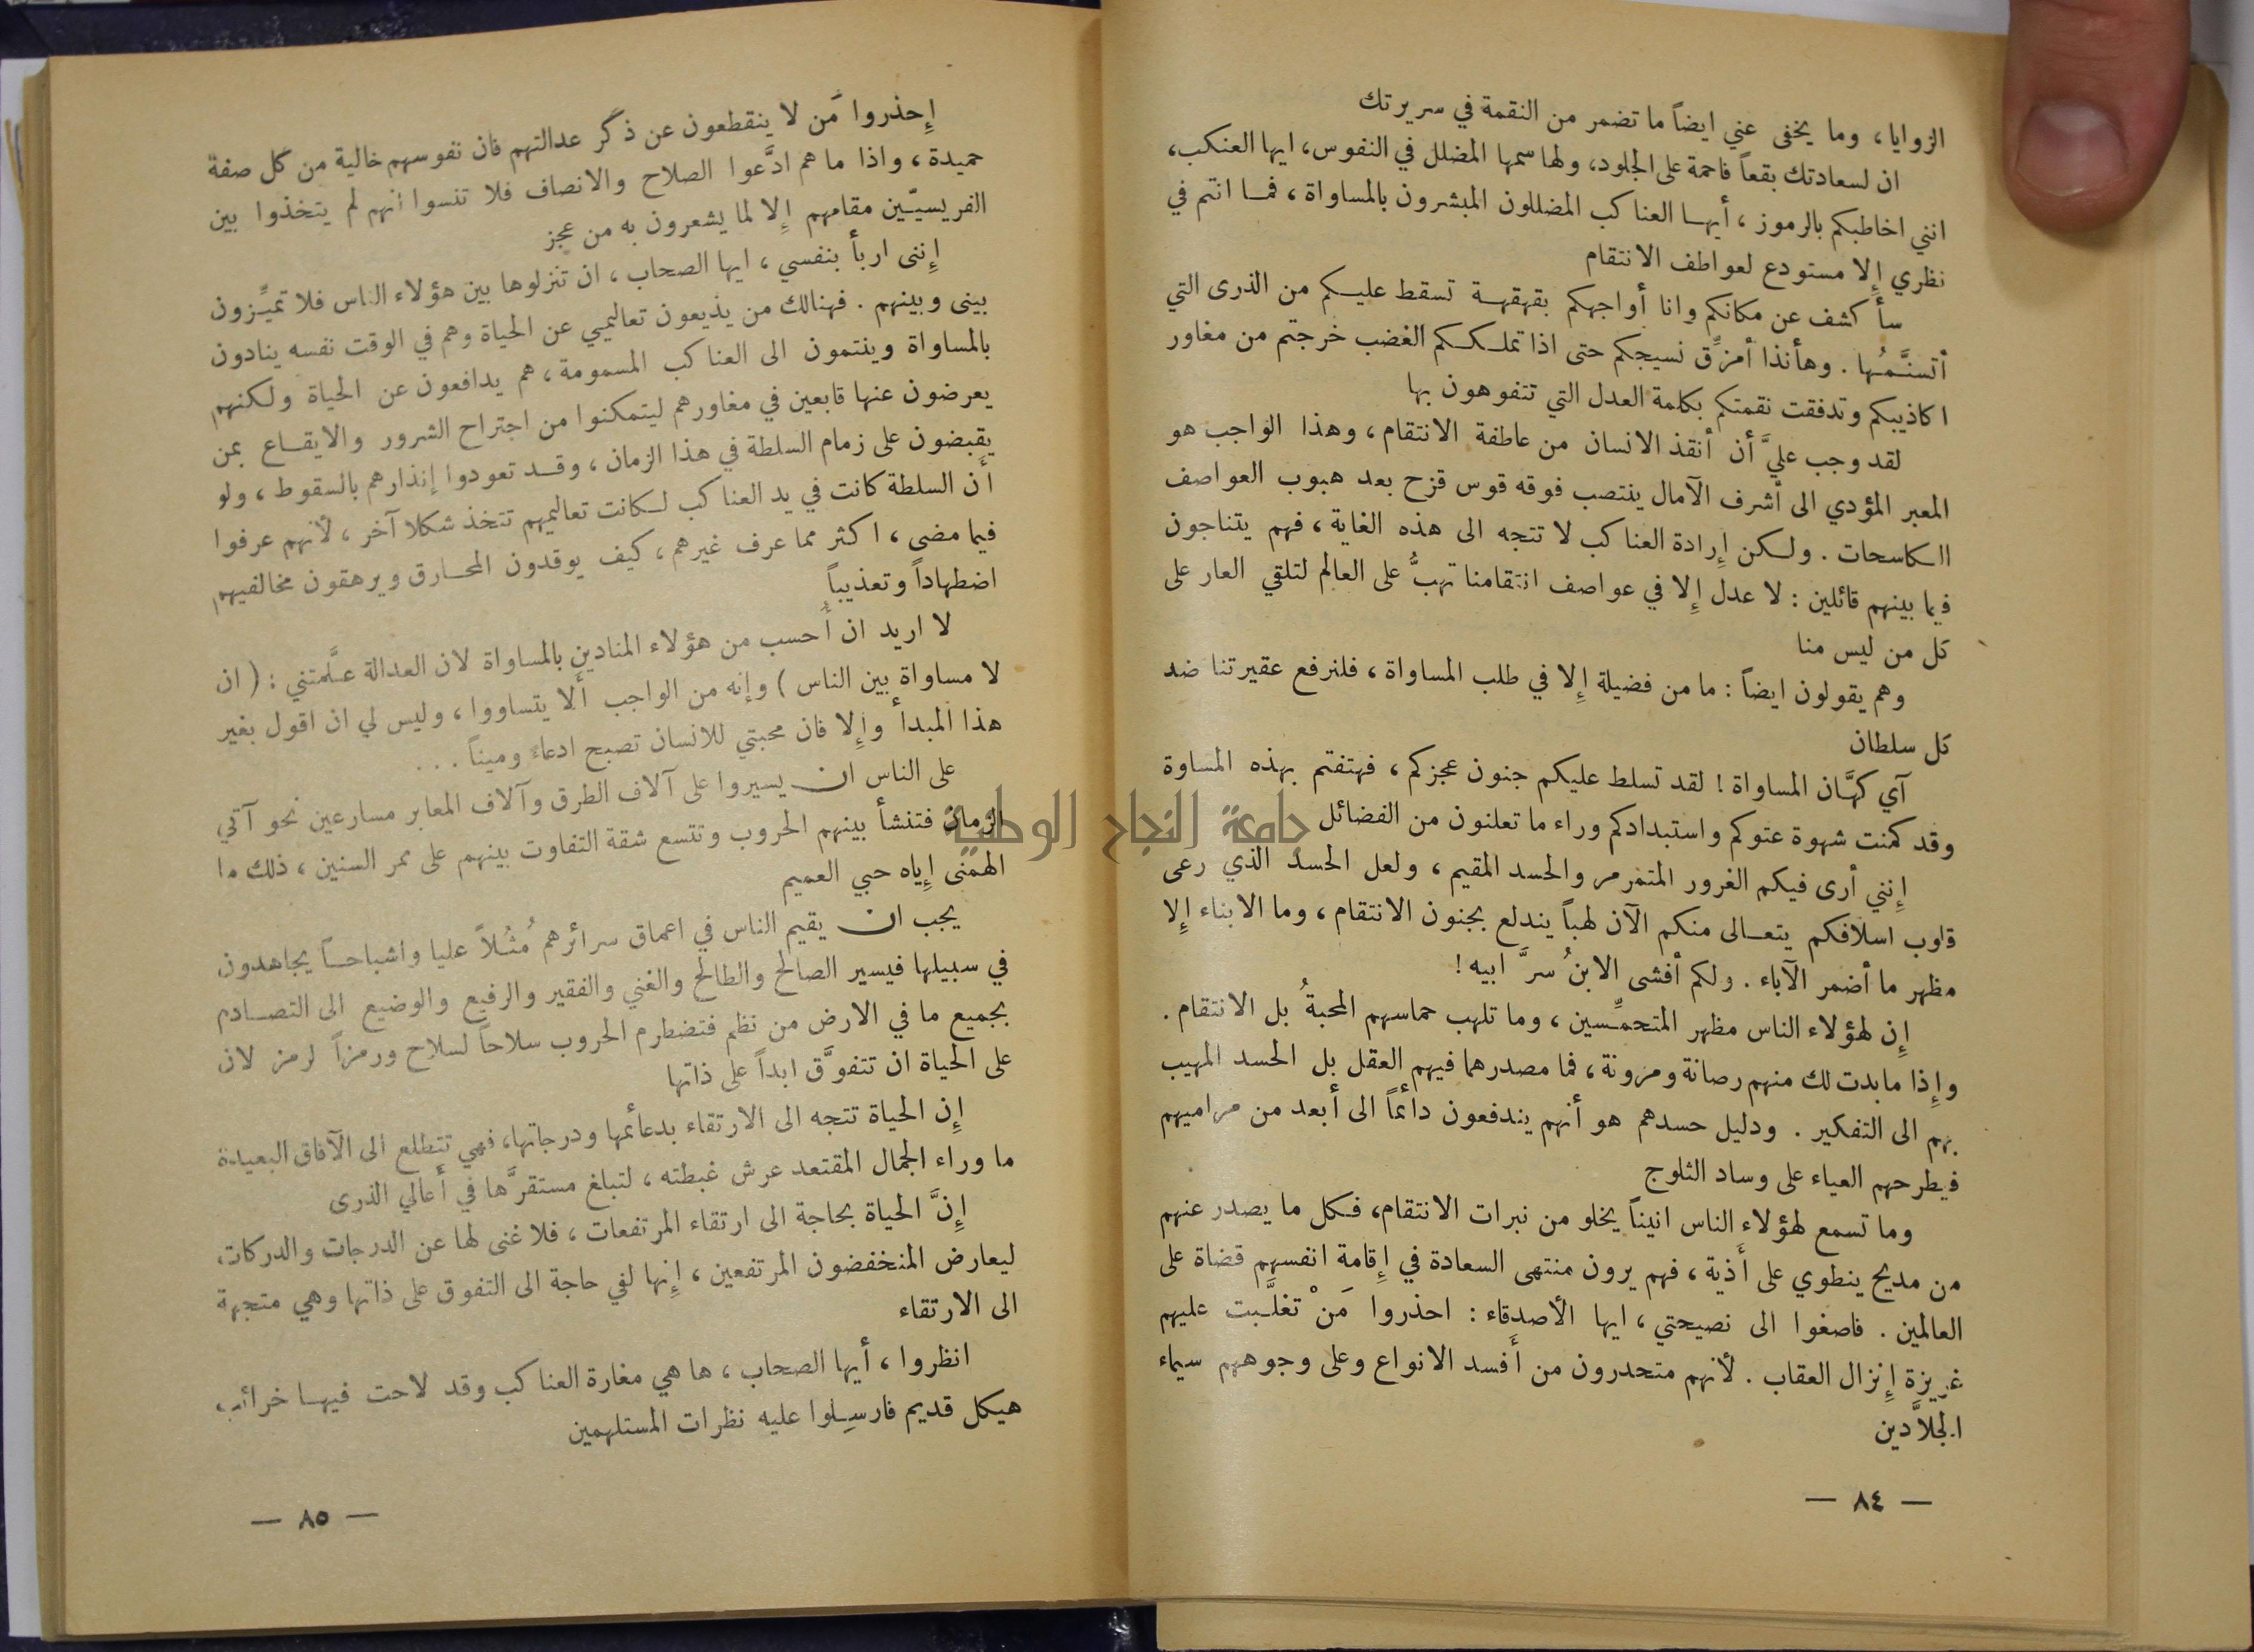 الزوايا، وما يخفى عني ايضاً ما تضمر من النقمة في سريرتك
ان لسعادتك بقعاً فاحمة على الجلود، ولها سمها المضلل في النفوس، ايها العنكب،
انني اخاطبكم بالرموز، أيها العناكب المضللون المبشرون بالمساواة، فما انتم في
نظري إلا مستودع لعواطف الانتقام
سأكشف عن مكانكم وانا أواجهكم بقهقهة تسقط عليكم من الذرى التي
أتسنَّمُها. وهأنذا أمزِّق نسيجكم حتى اذا تملككم الغضب خرجتم من مغاور
اكاذيبكم وتدفقت نقمتكم بكلمة العدل التي تتفوهون بها
لقد وجب عليَّ أن أنقذ الانسان من عاطفة الانتقام، وهذا الواجب هو
المعبر المؤدي الى أشرف الآمال ينتصب فوقه قوس قزح بعد هبوب العواصف
الكاسحات. ولكن إرادة العناكب لا تتجه الى هذه الغاية، فهم يتناجون
فيما بينهم قائلين: لا عدل إلا في عواصف انتقامنا تهبُّ على العالم لتلقي العار على
كل من ليس منا
وهم يقولون ايضاً: ما من فضيلة إلا في طلب المساواة، فلنرفع عقيرتنا ضد
كل سلطان
آي كهَّان المساواة! لقد تسلط عليكم جنون عجزكم، فهتفتم بهذه المساوة
وقد كمنت شهوة عتوكم واستبدادكم وراء ما تعلنون من الفضائل
إنني أرى فيكم الغرور المتمرمر والحسد المقيم، ولعل الحسد الذي رعى
قلوب اسلافكم يتعالى منكم الآن لهباً يندلع بجنون الانتقام، وما الابناء إلا
مظهر ما أضمر الآباء. ولكم أفشى الابنُ سرَّ ابيه!
إن لهؤلاء الناس مظهر المتحمِّسين، وما تلهب حماسهم المحبةُ بل الانتقام.
وإذا ما بدت لك منهم رصانة ومرونة، فما مصدرهما فيهم العقل بل الحسد المهيب
بهم الى التفكير. ودليل حسدهم هو أنهم يندفعون دائماً الى أبعد من مراميهم
فيطرحهم العياء على وساد الثلوج
وما تسمع لهؤلاء الناس انيناً يخلو من نبرات الانتقام، فكل ما يصدر عنهم
من مديح ينطوي على أذية، فهم يرون منتهى السعادة في إقامة انفسهم قضاة على
العالمين. فاصغوا الى نصيحتي، ايها الأصدقاء: احذروا مَنْ تغلَّبت عليهم
غريزة إنزال العقاب. لأنهم متحدرون من أفسد الانواع وعلى وجوههم سيماء
الجلاَّدين
— ٨٤ —
إحذروا مَن لا ينقطعون عن ذكر عدالتهم فان نفوسهم خالية من كل صفة
حميدة، واذا ما هم ادَّعوا الصلاح والانصاف فلا تنسوا انهم لم يتخذوا بين
الفريسيّين مقامهم إلا لما يشعرون به من عجز
إننى اربأ بنفسي، ايها الصحاب، ان تنزلوها بين هؤلاء الناس فلا تميِّزون
بينى وبينهم. فهنالك من يذيعون تعاليمي عن الحياة وهم في الوقت نفسه ينادون
بالمساواة وينتمون الى العناكب المسمومة، هم يدافعون عن الحياة ولكنهم
يعرضون عنها قابعين في مغاورهم ليتمكنوا من اجتراح الشرور والايقاع بمن
يقبضون على زمام السلطة في هذا الزمان، وقد تعودوا إنذارهم بالسقوط، ولو
أن السلطة كانت في يد العناكب لكانت تعاليمهم تتخذ شكلا آخر، لأنهم عرفوا
فيما مضى، اكثر مما عرف غيرهم، كيف يوقدون المحارق ويرهقون مخالفيهم
اضطهاداً وتعذيباً
لا اريد ان أحسب من هؤلاء المنادين بالمساواة لان العدالة علَّمتني: (ان
لا مساواة بين الناس) وإنه من الواجب ألا يتساووا، وليس لي ان اقول بغير
هذا المبدأ وإلا فان محبتي للانسان تصبح ادعاءً وميناً...
على الناس ان يسيروا على آلاف الطرق وآلاف المعابر مسارعين نحو آتي
الزمان فتنشأ بينهم الحروب وتتسع شقة التفاوت بينهم على ممر السنين، ذلك ما
الهمنى إياه حبي العميم
يجب ان يقيم الناس في اعماق سرائرهم مُثُلاً عليا واشباحاً يجاهدون
في سبيلها فيسير الصالح والطالح والغني والفقير والرفيع والوضيع الى التصادم
بجميع ما في الارض من نظم فتضطرم الحروب سلاحاً لسلاح ورمزاً لرمز لان
على الحياة ان تتفوَّق ابداً على ذاتها
إن الحياة تتجه الى الارتقاء بدعائمها ودرجاتها، فهي تتطلع الى الآفاق البعيدة
ما وراء الجمال المقتعد عرش غبطته، لتبلغ مستقرَّها في أعالي الذرى
إنَّ الحياة بحاجة الى ارتقاء المرتفعات، فلا غنى لها عن الدرجات والدركات،
ليعارض المنخفضون المرتفعين، إنها لفي حاجة الى التفوق على ذاتها وهي متجهة
الى الارتقاء
انظروا، أيها الصحاب، ها هي مغارة العناكب وقد لاحت فيها خرائب،
هيكل قديم فارسِلوا عليه نظرات المستلهمين
— ٨٥ —
جامعة النجاح الوطنية